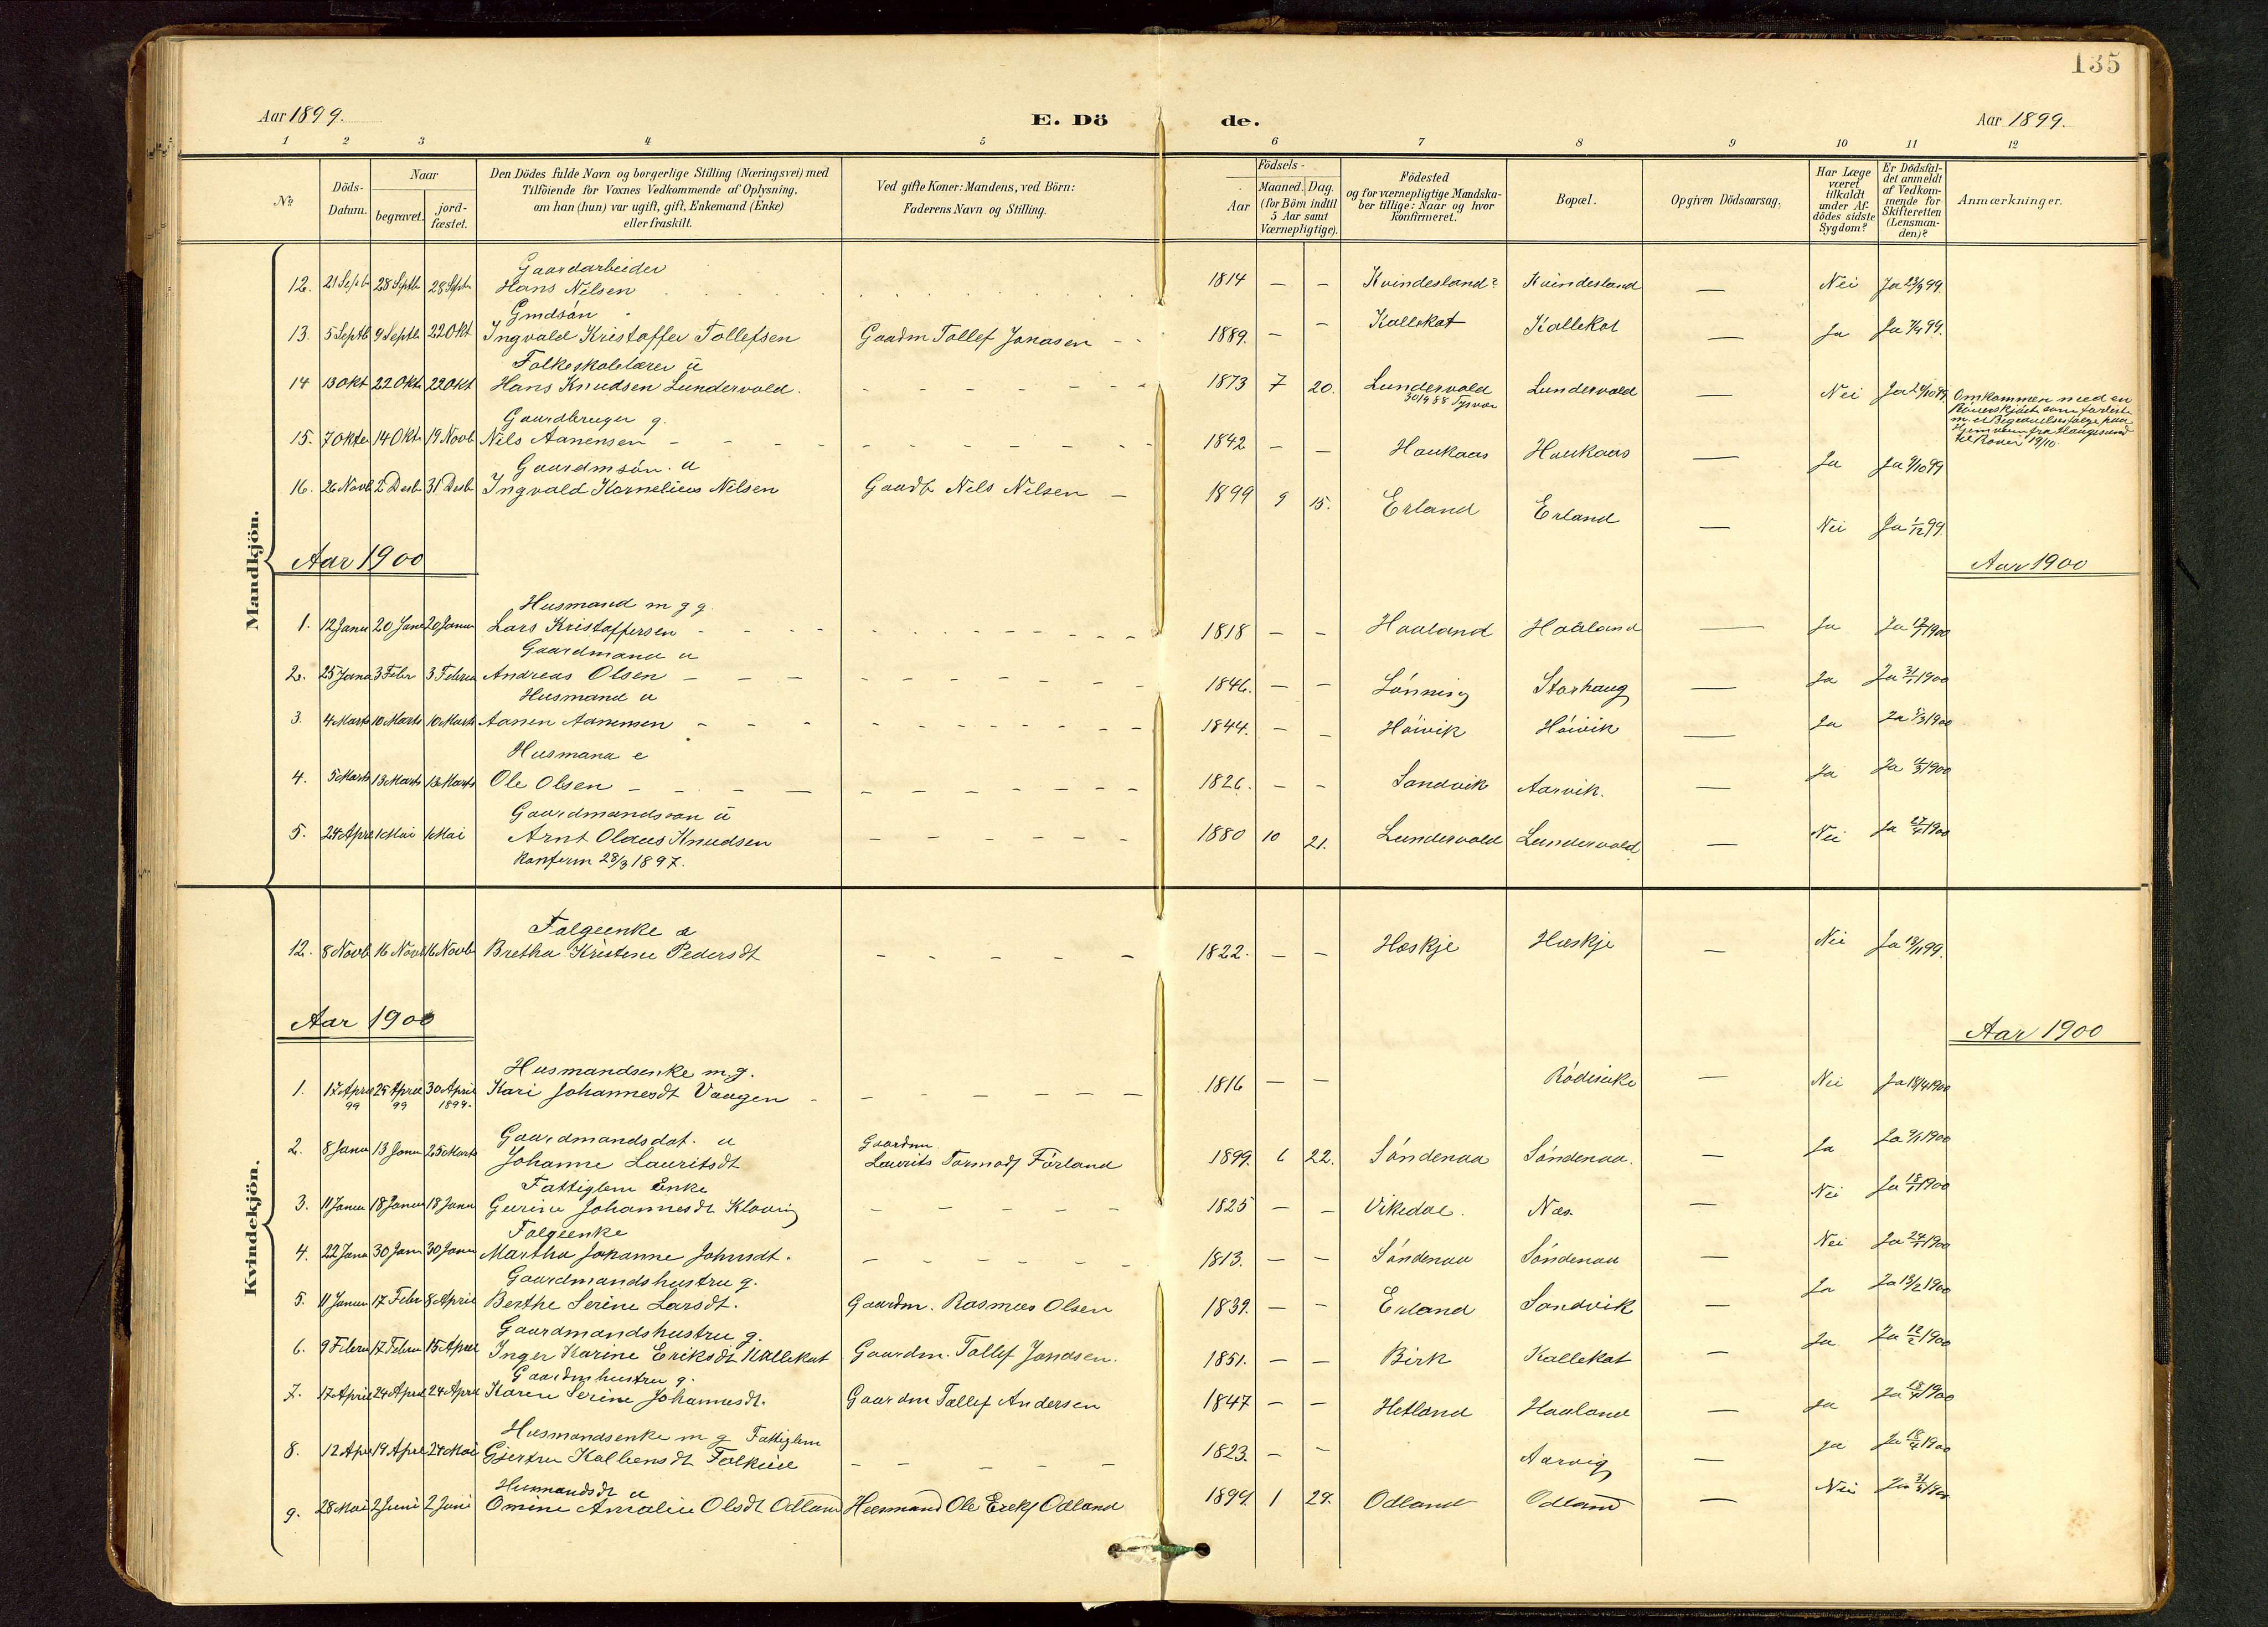 135
Aar 1899.
E. Dö de.
Aar 1899.
1 2 3 4 5 6 7 8 9 10 11 12
No
Döds-Datum.
Naar
begravet.
jord-fæstet.
Den Dödes fulde Navn og borgerlige Stilling (Næringsvei) med
Tilföiende for Voxnes Vedkommende af Oplysning,
om han (hun) var ugift, gift, Enkemand (Enke)
eller fraskilt.
Ved gifte Koner: Mandens, ved Börn:
Faderens Navn og Stilling.
Födsels-
Aar
Maaned. Dag.
(for Börn indtil
5 Aar samt
Værnepligtige).
Födested
og for værnepligtige Mandska-
ber tillige: Naar og hvor
Konfirmeret.
Bopæl.
Opgiven Dödsaarsag.
Har Læge
været
tilkaldt
under Af-
dödes sidste
Sygdom?
Er Dödsfal-
det anmeldt
af Vedkom-
mende for
Skifteretten
(Lensman-
den)?
Anmærkninger.
Mandkjön.
Gaardarbeider
12. 21 Septb 28 Septb 28 Septb Hans Nilsen 1814 – – Kvindesland? Kvindesland — Nei Ja 23/9 99.
Gmdsön
13. 5 Septb 9 Septb 22 Okt Ingvald Kristoffer Tollefsen Gaardm Tollef Jonasen 1889. – – Kallekot Kallekot — Ja Ja 7/9 99.
Folkeskolelærer u
14 13 Okt 22 Okt 22 Okt Hans Knudsen Lundervold. 1873 7 20. Lundervold Lundervold — Nei Ja
30/9 88 Tysvær
Omkommen med en
som forliste
m. et Begravelsesfølge paa
Hjemveien fra Haugesund
til 19/10.
Gaardbruger g.
15. 7 Oktb 14 Okt 19 Novb Nils Aanensen 1842 – – Haukaas Haukaas — Ja Ja 9/10 99
Gaardmsön. u
16. 26 Novb 2 Desb 31 Desb Ingvald Kornelius Nilsen Gaardb Nils Nilsen 1899 9 15. Erland Erland — Nei Ja 1/12 99.
Aar 1900
Aar 1900
Husmand m g g.
1. 12 Janu 20 Janu 20 Januar Lars Kristoffersen 1818 – – Haaland Haaland — Ja Ja 1900
Gaardmand u
2. 25 Janu 3 Febr 3 Februa Andreas Olsen 1846. – – Lönning Storhaug — Ja Ja 1900
Husmand u
3. 4 Marts 10 Marts 10 Marts Aanen Aanensen 1844. – – Höivik Höivik — Ja Ja 5/3 1900
Husmand e
4. 5 Marts 13 Marts 13 Marts Ole Olsen 1826. – – Sandvik Aarvik. — Ja Ja 1900
Gaardmandssøn u
5. 24 April 1 Mai 1 Mai Arnt Olaus Knudsen 1880 10 21. Lundervold Lundervold — Nei Ja 27/4 1900
Konfirm 28/3 1897.
Kvindekjön.
Folgeenke
12. 8 Novb 16 Novb 16 Novb Bretha Kristine Pedersdt 1822. – – Hæskje Hæskje — Nei Ja 13/11 99.
Aar 1900
Aar 1900
Husmandsenke m g.
1. 17 April 25 April 30 April Kari Johannesdt Vaagen 1816 – – — Nei Ja 18/4 1900
99 99 1899.
Gaardmandsdat. u
2. 8 Janu 13 Janu 25 Marts Johanne Lauritsdt Gaardm Laurits Tormods Förland 1899. 6 22. Söndenaa Söndenaa. — Ja Ja 9/1 1900
Fattiglem Enke
3. 11 Janu 18 Januar 18 Janu Gurine Johannesdt Kloving 1825 – – Vikedal. Nes. — Nei Ja 18/1 1900
Folgeenke
4. 22 Janu 30 Janu 30 Janu Martha Johanne Johnsdt. 1813. – – Söndenaa Söndenaa — Nei Ja 24/1 1900
Gaardmandshustru g.
5. 11 Januar 17 Febr 8 April Berthe Serine Larsdt. Gaardm. Rasmus Olsen 1839. – – Erland Sandvik — Ja Ja 13/2 1900
Gaardmandshustru g.
6. 9 Februa 17 Februa 15 April Inger Karine Eriksdt Kallekot Gaardm. Tollef Jonasen. 1851. – – Birk Kallekot — Ja Ja 12/2 1900
Gaardmhustru g.
7. 17 April 24 April 24 April Karen Serine Johannesdt. Gaardm Tollef Andersen 1847 – – Hetland Haaland — Ja Ja 18/4 1900
Husmandsenke m g Fattiglem
8. 12 April 19 April 24 Mai Gjertru Kolbensdt 1823. – – Aarvig — Ja Ja 18/4 1900
Husmandsdt u
9. 28 Mai 2 Juni 2 Juni Omine Amalie Olsdt Odland Husmand Ole Ereks Odland 1899. 1 29. Odland Odland — Nei Ja 31/5 1900